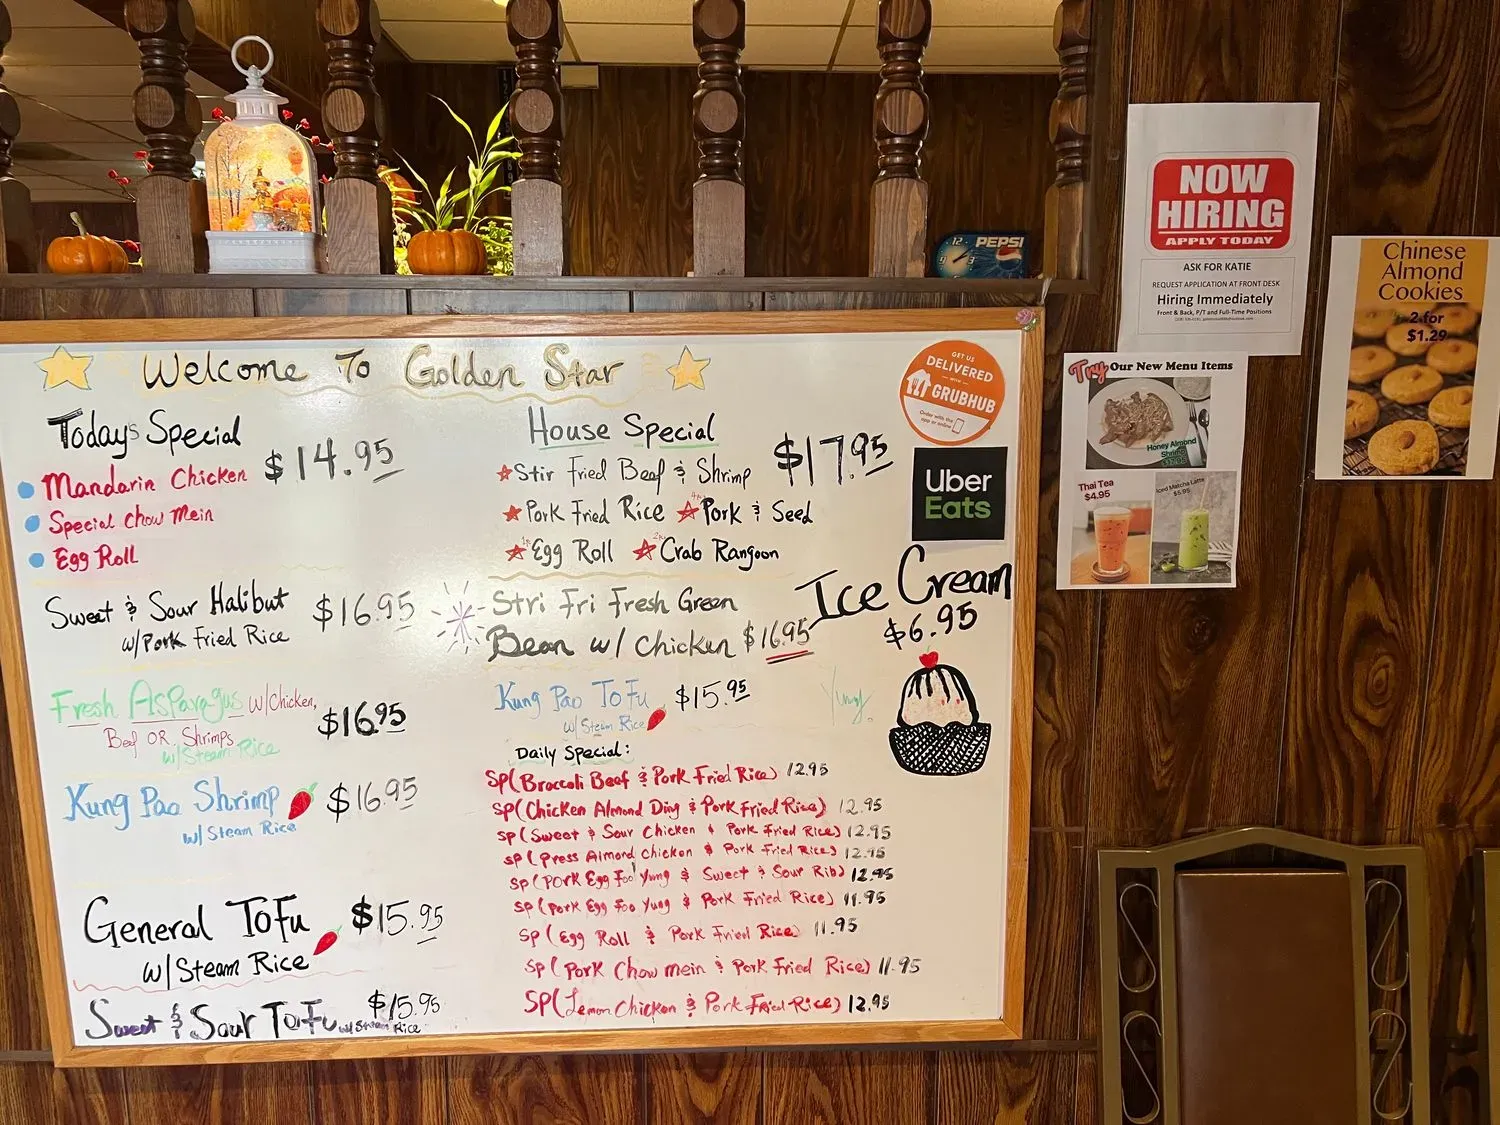 Welcome To Golden Star
Today's Special
$14.95
Mandarin Chicken
Special Chow Mein
Egg Roll
Sweet & Sour Halibut $16.95
w/Pork Fried Rice
Fresh Asparagus w/Chicken,
Beef OR Shrimps $16.95
w/Steam Rice
Kung Pao Shrimp $16.95
w/Steam Rice
General ToFu $15.95
w/Steam Rice
Sweet & Sour ToFu $15.95
w/Steam Rice
House Special
$17.95
Stir Fried Beef & Shrimp
Pork Fried Rice 4pc Pork & Seed
Egg Roll Crab Rangoon
Stri Fri Fresh Green
Bean w/ Chicken $16.95
Kung Pao ToFu $15.95
w/Steam Rice
Daily Special:
SP(Broccoli Beef & Pork Fried Rice) 12.95
SP(Chicken Almond Ding & Pork Fried Rice) 12.95
SP(Sweet & Sour Chicken & Pork Fried Rice) 12.95
SP(Press Almond Chicken & Pork Fried Rice) 12.95
SP(Pork Egg Foo Yung & Sweet & Sour Rib) 12.95
SP(Pork Egg Foo Yung & Pork Fried Rice) 11.95
SP(Egg Roll & Pork Fried Rice) 11.95
SP(Pork Chow mein & Pork Fried Rice) 11.95
SP(Lemon Chicken & Pork Fried Rice) 12.95
GET US
DELIVERED
WITH
GRUBHUB
Order with the
app or online
Uber
Eats
Ice Cream
$6.95
Yum!
PEPSI
12
9
3
NOW
HIRING
APPLY TODAY
ASK FOR KATIE
REQUEST APPLICATION AT FRONT DESK
Hiring Immediately
Front & Back, P/T and Full-Time Positions
Try Our New Menu Items
Honey Almond
Shrimp
$17.95
Thai Tea
$4.95
Iced Matcha Latte
$5.95
Chinese
Almond
Cookies
2 for
$1.29